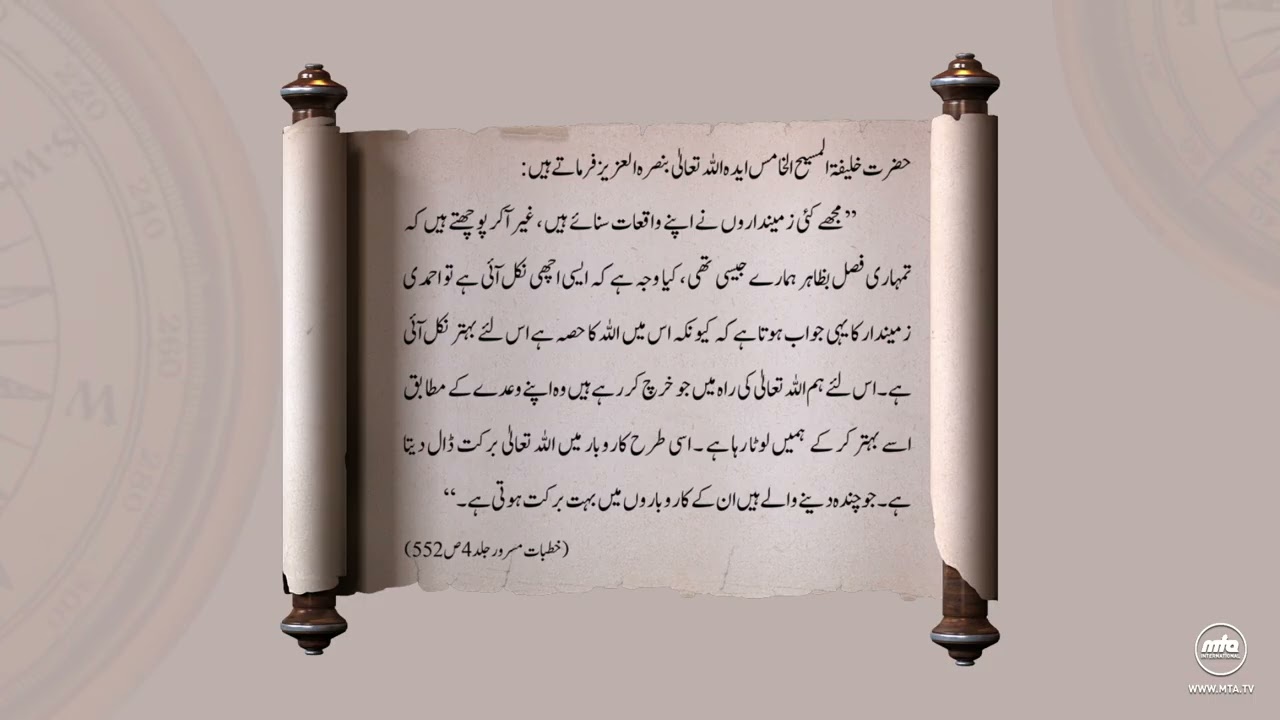 حضرت خلیفۃ المسیح الخامس ایدہ اللہ تعالیٰ بنصرہ العزیز فرماتے ہیں:
”مجھے کئی زمینداروں نے اپنے واقعات سنائے ہیں، غیر آکر پوچھتے ہیں کہ
تمہاری فصل بظاہر ہمارے جیسی تھی، کیا وجہ ہے کہ ایسی اچھی نکل آئی ہے تو احمدی
زمیندار کا یہی جواب ہوتا ہے کہ کیونکہ اس میں اللہ کا حصہ ہے اس لئے بہتر نکل آئی
ہے۔ اس لئے ہم اللہ تعالیٰ کی راہ میں جو خرچ کر رہے ہیں وہ اپنے وعدے کے مطابق
اسے بہتر کر کے ہمیں لوٹا رہا ہے۔ اسی طرح کاروبار میں اللہ تعالیٰ برکت ڈال دیتا
ہے۔ جو چندہ دینے والے ہیں ان کے کاروباروں میں بہت برکت ہوتی ہے۔“
(خطبات مسرور جلد 4 ص 552)
mta
INTERNATIONAL
WWW.MTA.TV
220
240
260
280
S.W
W